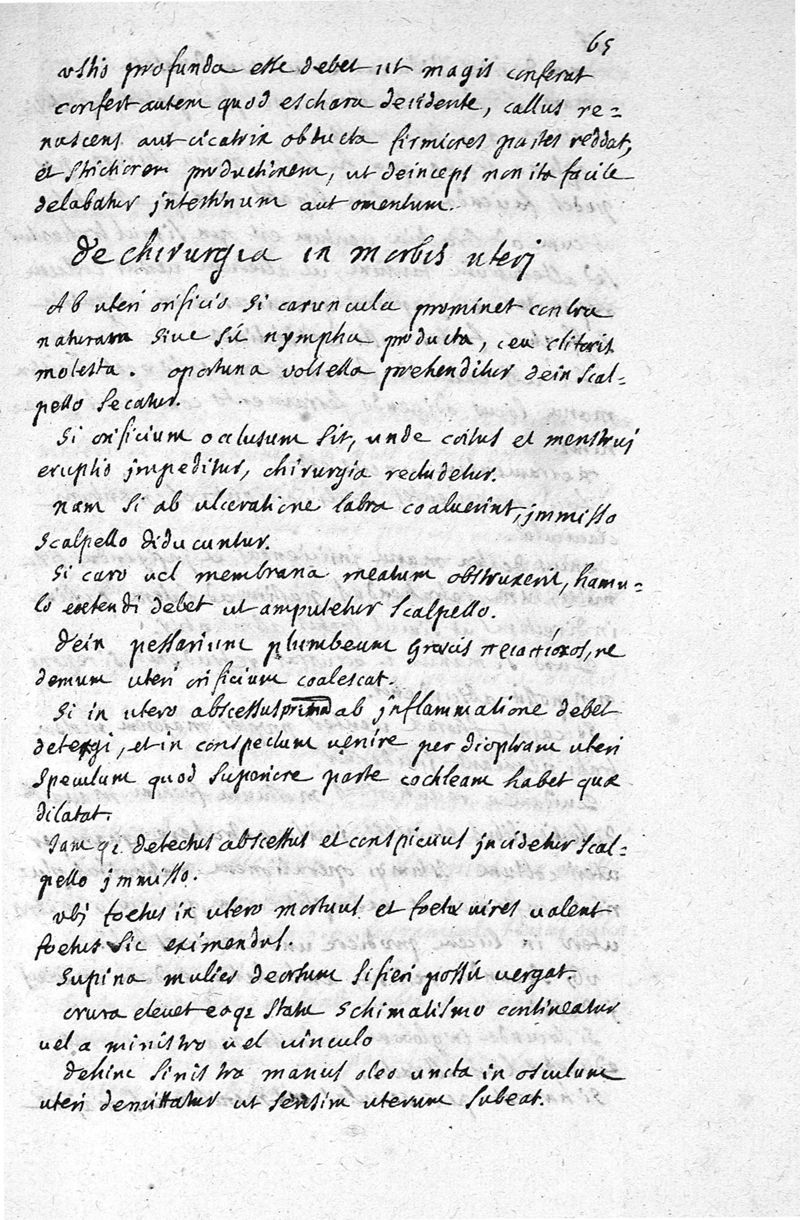 65
ustio profunda esse debet ut magis conferat
confert autem quod eschara decidente, callus re=
nascens aut cicatrix obducta firmiores partes reddat,
et strictiorem productionem, ut deinceps non ita facile
delabatur intestinum aut omentum.
de chirurgia in morbis uterj
Ab uteri orificio si caruncula prominet contra
naturam siue sit nympha producta, ceu clitoris
molesta. oportuna volsella prehenditur dein scal=
pello secatur.
Si orificium occlusum sit, unde coitus et menstruj
eruptio jmpeditur, chirurgia recludetur.
nam si ab ulceratione labra coaluerint, jmmisso
scalpello diducuntur.
Si caro vel membrana meatum obstruxerit, hamu=
lo extendi debet ut amputetur scalpello.
dein pessarium plumbeum Græcis, ne
demum uteri orificium coalescat.
Si in utero abscessus ab jnflammatione debet
detegi, et in conspectum venire per dioptram uteri
speculum quod superiore parte cochleam habet quæ
dilatat.
Iamq; detectus abscessus et conspicuus jncidetur scal=
pello jmmisso.
vbj foetus in utero mortuus et foetæ vires valent
foetus sic eximendus.
Supina mulier deorsum si fieri possit vergat
crura elevet eoq; statu schimatismo contineatur
vel a ministro vel vinculo
dehinc sinistra manus oleo uncta in osculum
uteri demittatur ut sensim uterum subeat.